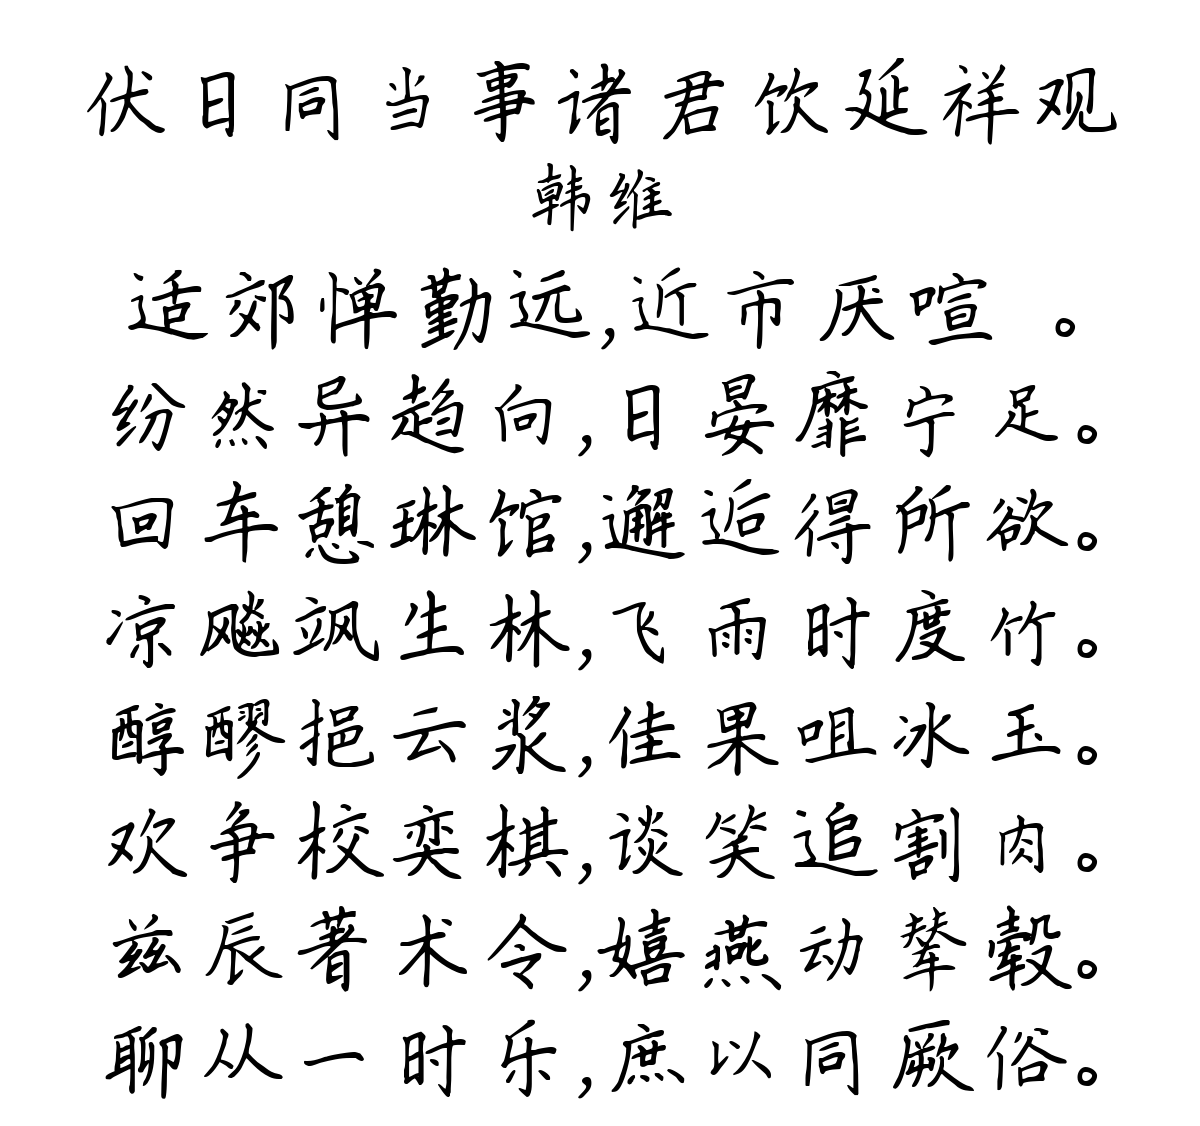 伏日同当事诸君饮延祥观
韩维
适郊惮勤远,近市厌喧 。
纷然异趋向,日晏靡宁足。
回车憩琳馆,邂逅得所欲。
凉飚飒生林,飞雨时度竹。
醇醪挹云浆,佳果咀冰玉。
欢争校奕棋,谈笑追割肉。
兹辰著术令,嬉燕动辇毂。
聊从一时乐,庶以同厥俗。